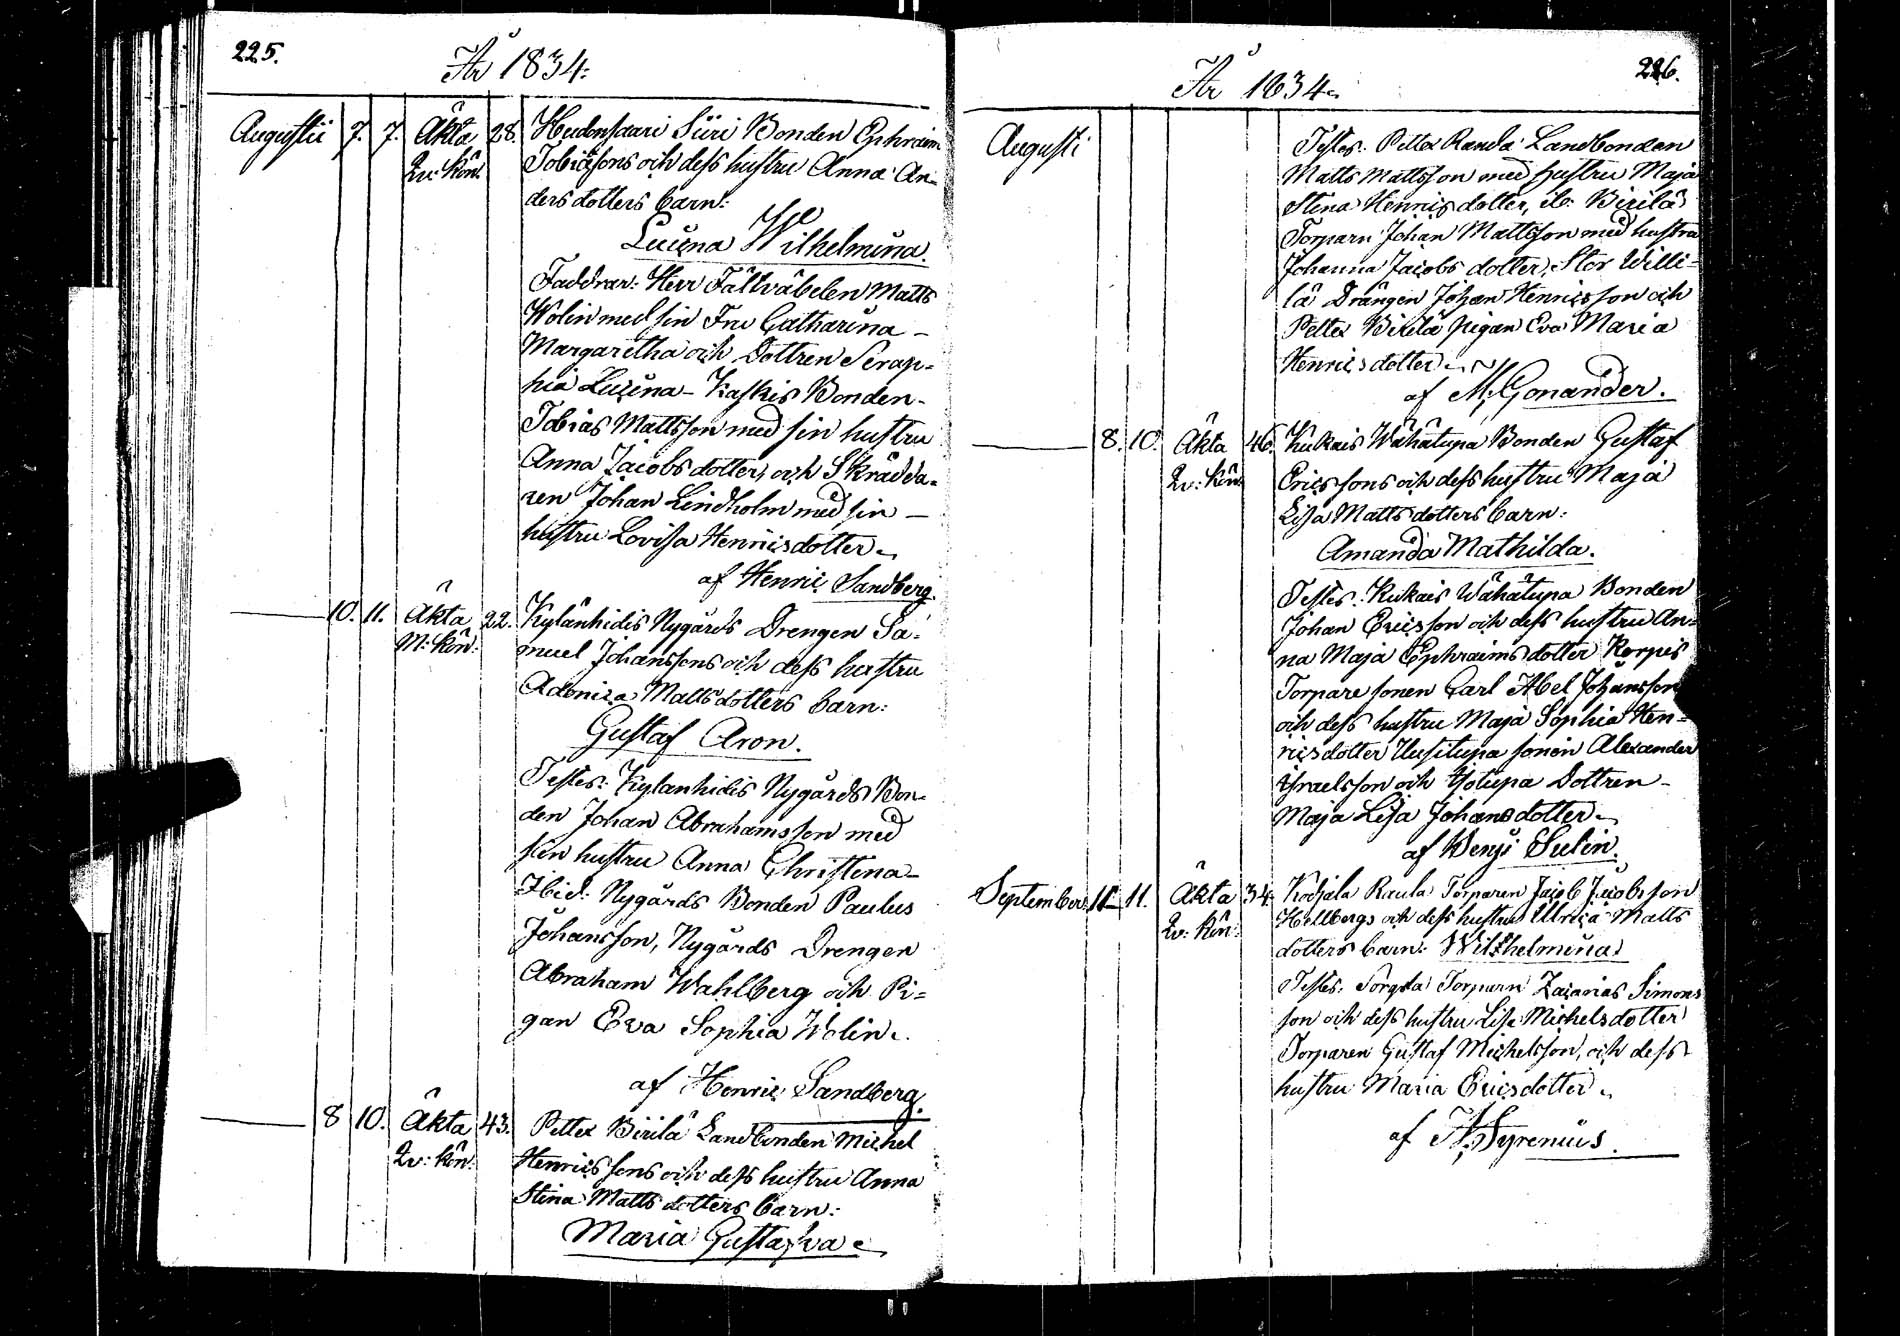 225.
År 1834.
Augusti 7. 7. Äkta 28. Hudensaari Siiri Bonden Ephraim
Qv: kön. Tobiæsons och dess hustru Anna An-
ders dotters barn:
Lucina Wilhelmina.
Faddrar: Herr Fältväbelen Matts
Wolin med sin Fru Catharina -
Margaretha och Dottren Serap-
hia Lucina - Kaskis Bonden -
Tobias Mattsson med sin hustru
Anna Jacobs dotter, och Skrädda-
ren Johan Lindholm med sin -
hustru Lovisa Henricsdotter.
af Henric Sandberg.
10. 11. Äkta 22. Kylänhidis Nygårds Drengen Sa-
M: kön: muel Johanssons och dess hustru
Adonica Matts dotters barn:
Gustaf Aron.
Testes: Kylänhidis Nygårds Bon-
den Johan Abrahamsson med
sin hustru Anna Christina -
Ibid: Nygårds Bonden Paulus
Johansson, Nygårds Drengen
Abraham Wahlberg och Pi-
gan Eva Sophia Wolin.
af Henric Sandberg.
8 10. Äkta 43. Petter Birilä Landbonden Michel
Qv: kön. Henrics sons och dess hustru Anna
Stina Matts dotters barn:
Maria Gustafva
226.
År 1834.
Augusti
Testes: Petter Randa Landbonden
Matts Mattsson med hustru Maja
Stina Henrics dotter, ib: Birilä
Torparn Johan Mattsson med hustru
Johanna Jacobs dotter, Stor Willi-
lä Drängen Johan Henricsson och
Petter Birilä pigan Eva Maria
Henrics dotter.
af M. Gonander.
8. 10. Äkta 46. Kukais Wähätupa Bonden Gustaf
Qv: kön Ericssons och dess hustru Maja
Lisa Matts dotters barn:
Amanda Mathilda.
Testes: Kukais Wähätupa Bonden
Johan Ericsson och dess hustru An-
na Maja Ephraims dotter Korpis
Torpare sonen Carl Abel Johansson
och dess hustru Maja Sophia Hen-
ricsdotter Uusitupa sonen Alexander
Israelsson och Isotupa Dottren -
Maja Lisa Johansdotter.
af Benj: Sulin.
September 11 11. Äkta 34. Kodjala Raula Torparen Jacob Jacobsson
Qv: kön: Hellbergs och dess hustru Ulrica Matts
dotters barn: Wilhelmina.
Testes: Sorgsta Torparn Zacarias Simons
son och dess hustru Lisa Michelsdotter
Torparen Gustaf Michelsson, och dess
hustru Maria Ericsdotter.
af A. Syrenius.